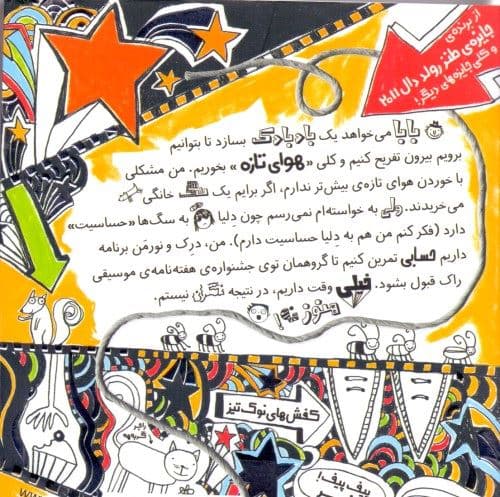 از برنده‌ی
جایزه‌ی طنز رولد دال ۲۰۱۱
و کلی جایزه‌های دیگر!
بابا می‌خواهد یک بادبادک بسازد تا بتوانیم
برویم بیرون تفریح کنیم و کلی «هوای تازه» بخوریم. من مشکلی
با خوردن هوای تازه‌ی بیش‌تر ندارم، اگر برایم یک سگ خانگی
می‌خریدند. ولی به خواسته‌ام نمی‌رسم چون دِلیا به سگ‌ها «حساسیت»
دارد (فکر کنم من هم به دِلیا حساسیت دارم). من، دِرِک و نورمَن برنامه
داریم حسابی تمرین کنیم تا گروهمان توی جشنواره‌ی هفته‌نامه‌ی موسیقی
راک قبول بشود. خیلی وقت داریم، در نتیجه نگران نیستم.
هنوز
کفش‌های نوک‌تیز
پیف پیف!
www